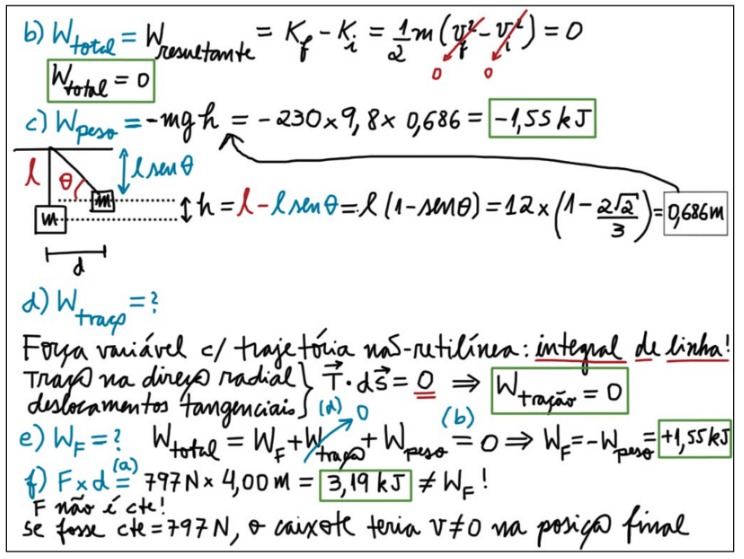 b) W_total = W_resultante = K_f - K_i = 1/2 m (v_f² - v_i²) = 0
0 0
W_total = 0
c) W_peso = -mgh = -230×9,8×0,686 = -1,55 kJ
l θ l sen θ
m
m
h = l - l sen θ = l (1 - sen θ) = 12 × (1 - 2√2/3) = 0,686 m
d
d) W_traço = ?
Força variável c/ trajetória não-retilínea: integral de linha!
Traço na direço radial } T⃗ · ds⃗ = 0 ⇒ W_tração = 0
deslocamentos tangenciais
(d) 0 (b)
e) W_F = ? W_total = W_F + W_traço + W_peso = 0 ⇒ W_F = -W_peso = +1,55 kJ
f) F × d = (a) 797 N × 4,00 m = 3,19 kJ ≠ W_F !
F não é cte!
se fosse cte = 797 N, o caixote teria v ≠ 0 na posiço final